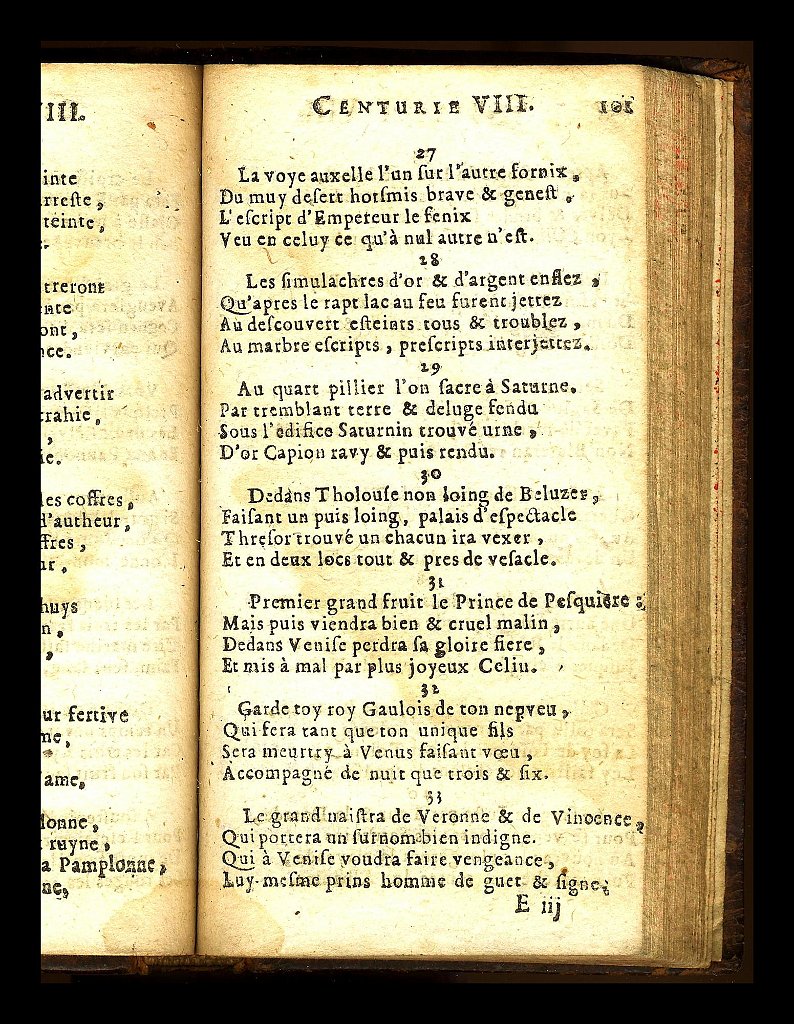 VIII.
inte
rreste,
téinte,
treront
ente
ont,
nce.
advertir
trahie,
,
ie.
les coffres,
d'autheur,
ffres,
ur,
huys
n,
,
ur fertive
me,
l'ame,
lonne,
ruyne,
a Pamplonne,
ne,
CENTURIE VIII. 101
27
La voye auxelle l'un sur l'autre fornix,
Du muy desert horsmis brave & genest,
L'escript d'Empereur le fenix
Veu en celuy ce qu'à nul autre n'est.
28
Les simulachres d'or & d'argent enflez,
Qu'apres le rapt lac au feu furent jettez
Au descouvert esteints tous & troublez,
Au marbre escripts, prescripts interjettez.
29
Au quart pillier l'on sacre à Saturne.
Par tremblant terre & deluge fendu
Sous l'edifice Saturnin trouvé urne,
D'or Capion ravy & puis rendu.
30
Dedans Tholouse non loing de Beluzer,
Faisant un puis loing, palais d'espectacle
Thresor trouvé un chacun ira vexer,
Et en deux locs tout & pres de vesacle.
31
Premier grand fruit le Prince de Pesquiere:
Mais puis viendra bien & cruel malin,
Dedans Venise perdra sa gloire fiere,
Et mis à mal par plus joyeux Celin.
32
Garde toy roy Gaulois de ton nepveu,
Qui fera tant que ton unique fils
Sera meurtry à Venus faisant vœu,
Accompagné de nuit que trois & six.
33
Le grand naistra de Veronne & de Vincence,
Qui portera un surnom bien indigne.
Qui à Venise voudra faire vengeance,
Luy-mesme prins homme de guet & signe.
E iij